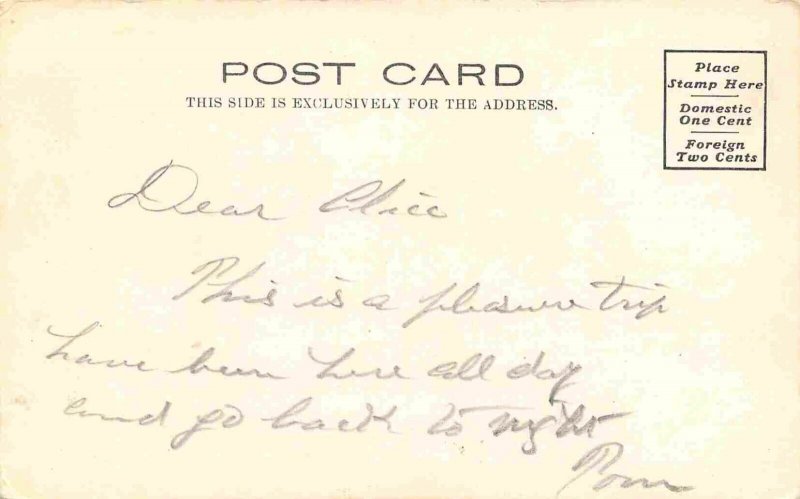 POST CARD
THIS SIDE IS EXCLUSIVELY FOR THE ADDRESS.
Place
Stamp Here
Domestic
One Cent
Foreign
Two Cents
Dear Alice
This is a pleasure trip
have been here all day
and go back to night
Tom